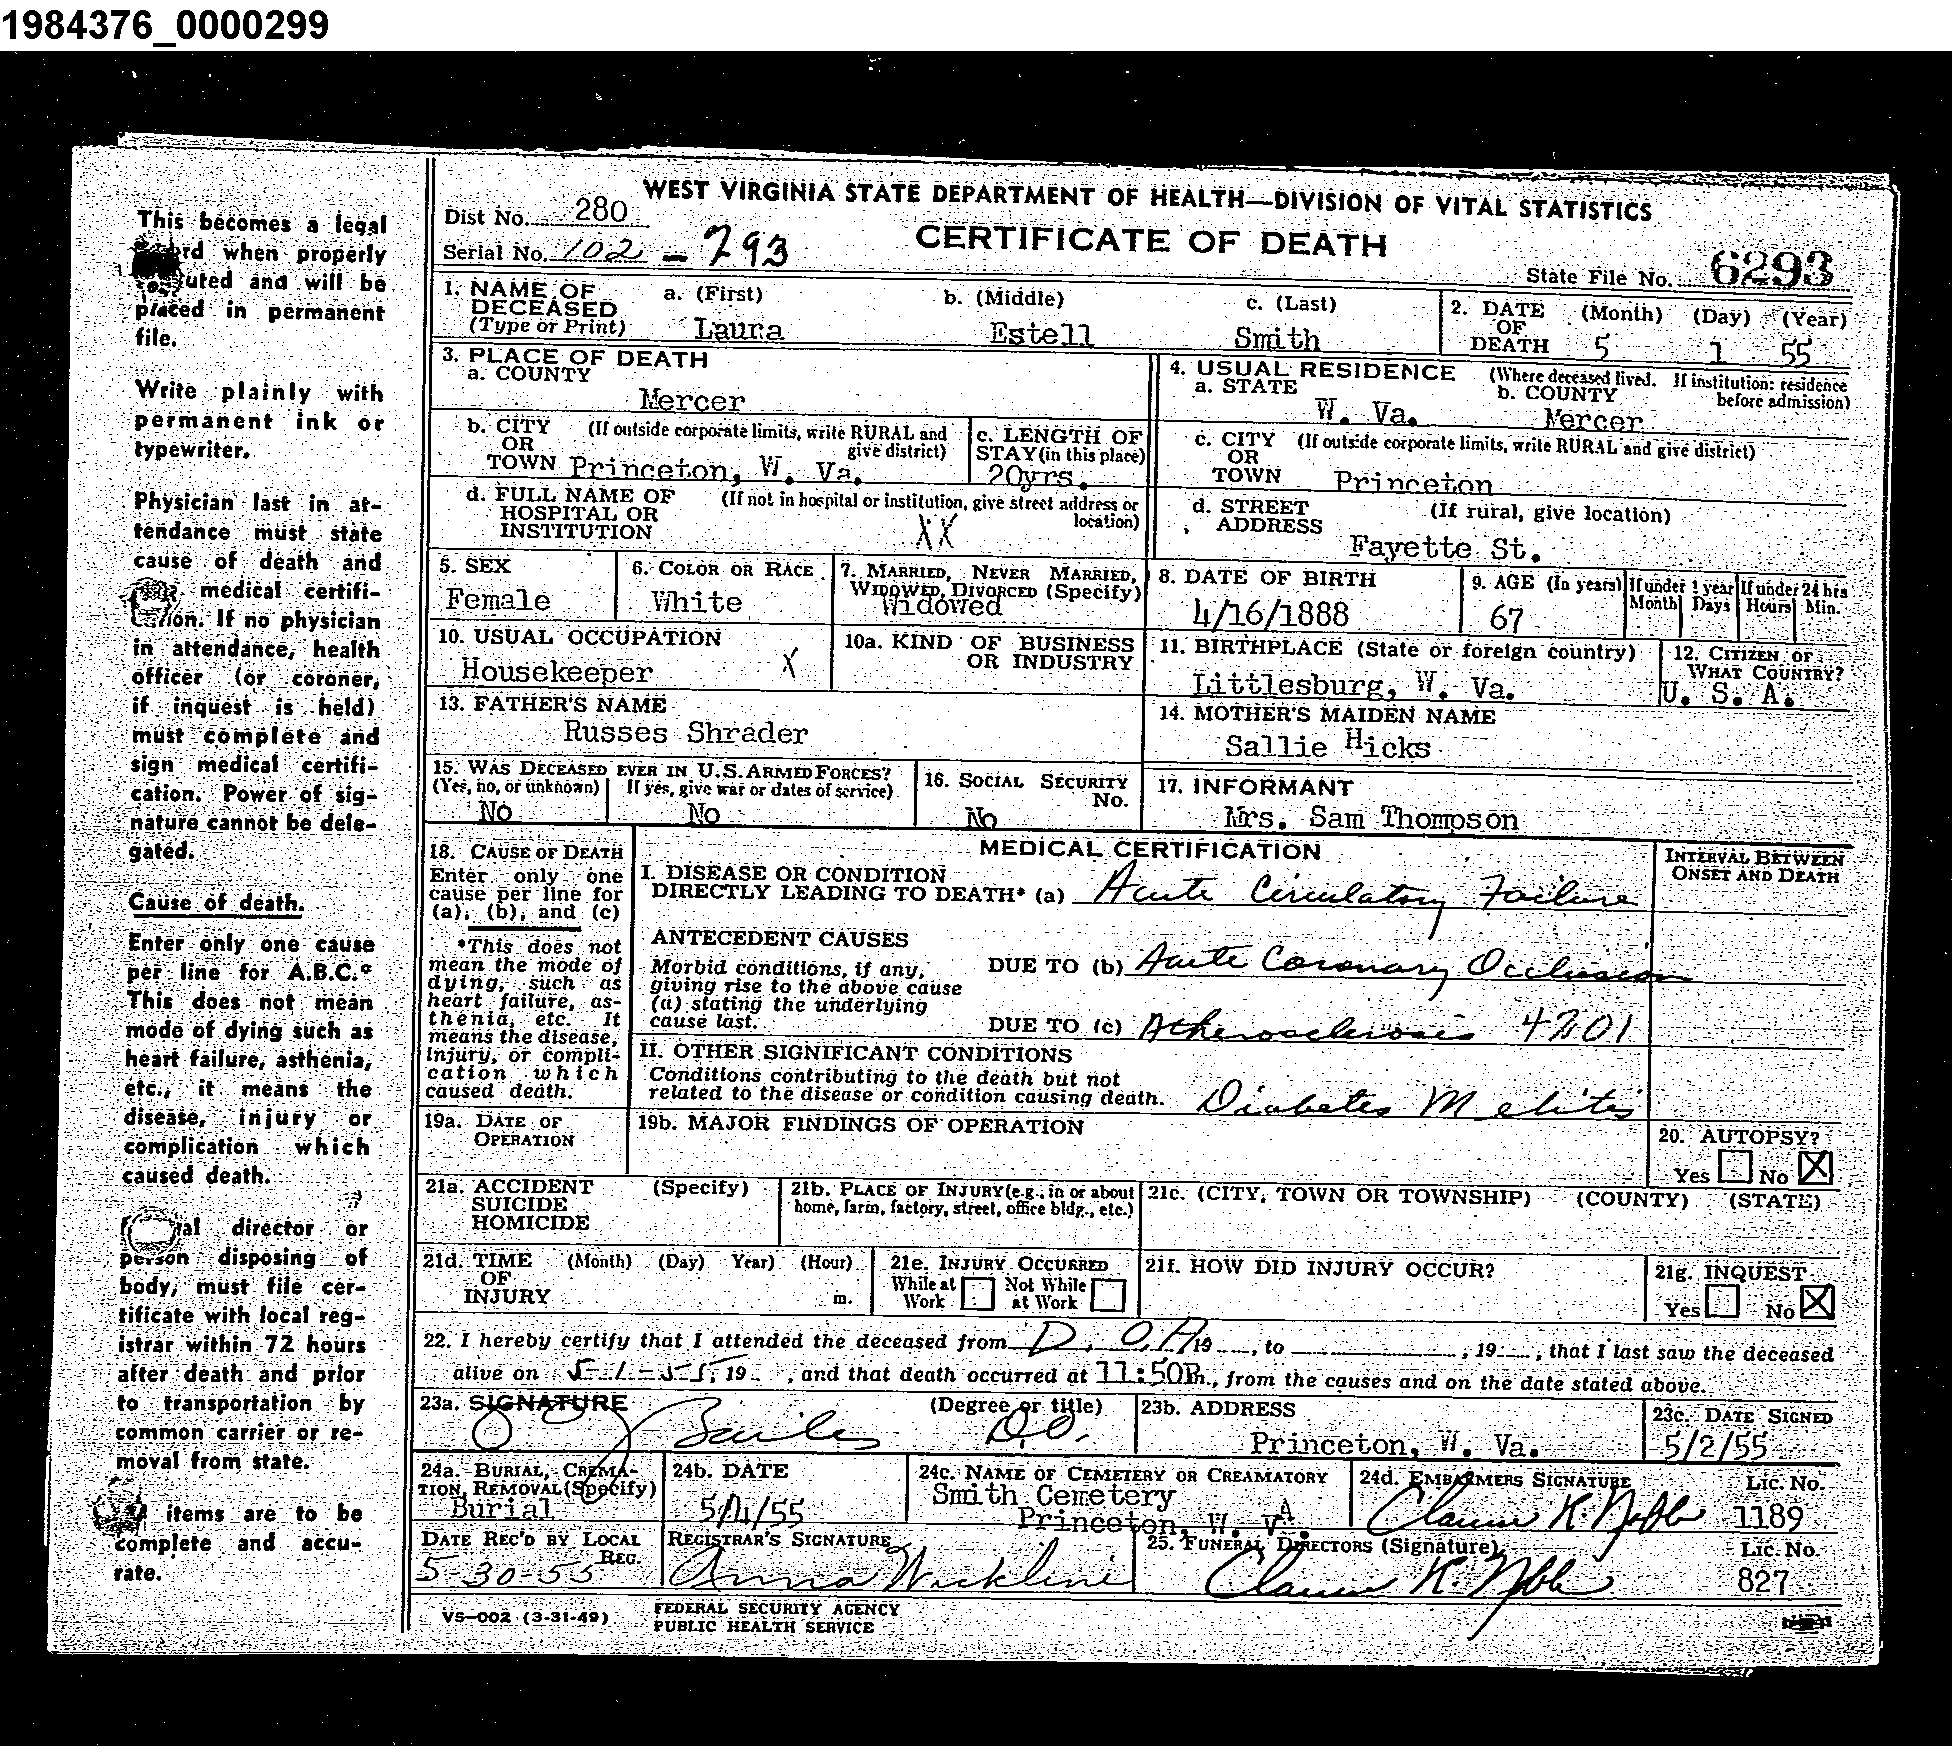 1984376_0000299
WEST VIRGINIA STATE DEPARTMENT OF HEALTH—DIVISION OF VITAL STATISTICS
CERTIFICATE OF DEATH
Dist No. 280
Serial No. 102 - 793
State File No. 6293
This becomes a legal
rd when properly
uted and will be
placed in permanent
file.
Write plainly with
permanent ink or
typewriter.
Physician last in at-
tendance must state
cause of death and
medical certifi-
tion. If no physician
in attendance, health
officer (or coroner,
if inquest is held)
must complete and
sign medical certifi-
cation. Power of sig-
nature cannot be dele-
gated.
Cause of death.
Enter only one cause
per line for A.B.C.*
This does not mean
mode of dying such as
heart failure, asthenia,
etc., it means the
disease, injury or
complication which
caused death.
al director or
person disposing of
body, must file cer-
tificate with local reg-
istrar within 72 hours
after death and prior
to transportation by
common carrier or re-
moval from state.
items are to be
complete and accu-
rate.
1. NAME OF DECEASED (Type or Print)
a. (First) Laura
b. (Middle) Estell
c. (Last) Smith
2. DATE OF DEATH (Month) 5 (Day) 1 (Year) 55
3. PLACE OF DEATH
a. COUNTY Mercer
b. CITY OR TOWN (If outside corporate limits, write RURAL and give district) Princeton, W. Va.
c. LENGTH OF STAY (in this place) 20yrs.
d. FULL NAME OF HOSPITAL OR INSTITUTION (If not in hospital or institution, give street address or location) XX
4. USUAL RESIDENCE (Where deceased lived. If institution: residence before admission)
a. STATE W. Va.
b. COUNTY Mercer
c. CITY OR TOWN (If outside corporate limits, write RURAL and give district) Princeton
d. STREET ADDRESS (If rural, give location) Fayette St.
5. SEX Female
6. COLOR OR RACE White
7. MARRIED, NEVER MARRIED, WIDOWED, DIVORCED (Specify) Widowed
8. DATE OF BIRTH 4/16/1888
9. AGE (In years) 67
If under 1 year Month Days
If under 24 hrs Hours Min.
10. USUAL OCCUPATION Housekeeper X
10a. KIND OF BUSINESS OR INDUSTRY
11. BIRTHPLACE (State or foreign country) Littlesburg, W. Va.
12. CITIZEN OF WHAT COUNTRY? U. S. A.
13. FATHER'S NAME Russes Shrader
14. MOTHER'S MAIDEN NAME Sallie Hicks
15. WAS DECEASED EVER IN U.S. ARMED FORCES?
(Yes, no, or unknown) No
If yes, give war or dates of service) No
16. SOCIAL SECURITY No. No
17. INFORMANT Mrs. Sam Thompson
18. CAUSE OF DEATH
Enter only one
cause per line for
(a), (b), and (c)
*This does not
mean the mode of
dying, such as
heart failure, as-
thenia, etc. It
means the disease,
injury, or compli-
cation which
caused death.
MEDICAL CERTIFICATION
INTERVAL BETWEEN ONSET AND DEATH
I. DISEASE OR CONDITION
DIRECTLY LEADING TO DEATH* (a) Acute Circulatory Failure
ANTECEDENT CAUSES
Morbid conditions, if any,
giving rise to the above cause
(a) stating the underlying
cause last.
DUE TO (b) Acute Coronary Occlusion
DUE TO (c) Atherosclerosis 4201
II. OTHER SIGNIFICANT CONDITIONS
Conditions contributing to the death but not
related to the disease or condition causing death. Diabetes Melitis
19a. DATE OF OPERATION
19b. MAJOR FINDINGS OF OPERATION
20. AUTOPSY?
Yes No X
21a. ACCIDENT SUICIDE HOMICIDE (Specify)
21b. PLACE OF INJURY (e.g., in or about home, farm, factory, street, office bldg., etc.)
21c. (CITY, TOWN OR TOWNSHIP) (COUNTY) (STATE)
21d. TIME OF INJURY (Month) (Day) Year) (Hour) m.
21e. INJURY OCCURRED
While at Work Not While at Work
21f. HOW DID INJURY OCCUR?
21g. INQUEST
Yes No X
22. I hereby certify that I attended the deceased from D.O.A. 19 , to , 19 , that I last saw the deceased
alive on 5-1-55, 19 , and that death occurred at 11:50P m., from the causes and on the date stated above.
23a. SIGNATURE (Degree or title) Bailes D.O.
23b. ADDRESS Princeton, W. Va.
23c. DATE SIGNED 5/2/55
24a. BURIAL, CREMATION, REMOVAL (Specify) Burial
24b. DATE 5/4/55
24c. NAME OF CEMETERY OR CREAMATORY Smith Cemetery
Princeton, W. VA.
24d. EMBALMERS SIGNATURE Lic. No. 1189
DATE REC'D BY LOCAL REG. 5-30-55
REGISTRAR'S SIGNATURE Anna Wickline
25. FUNERAL DIRECTORS (Signature) Lic. No. 827
VS-002 (3-31-49)
FEDERAL SECURITY AGENCY
PUBLIC HEALTH SERVICE